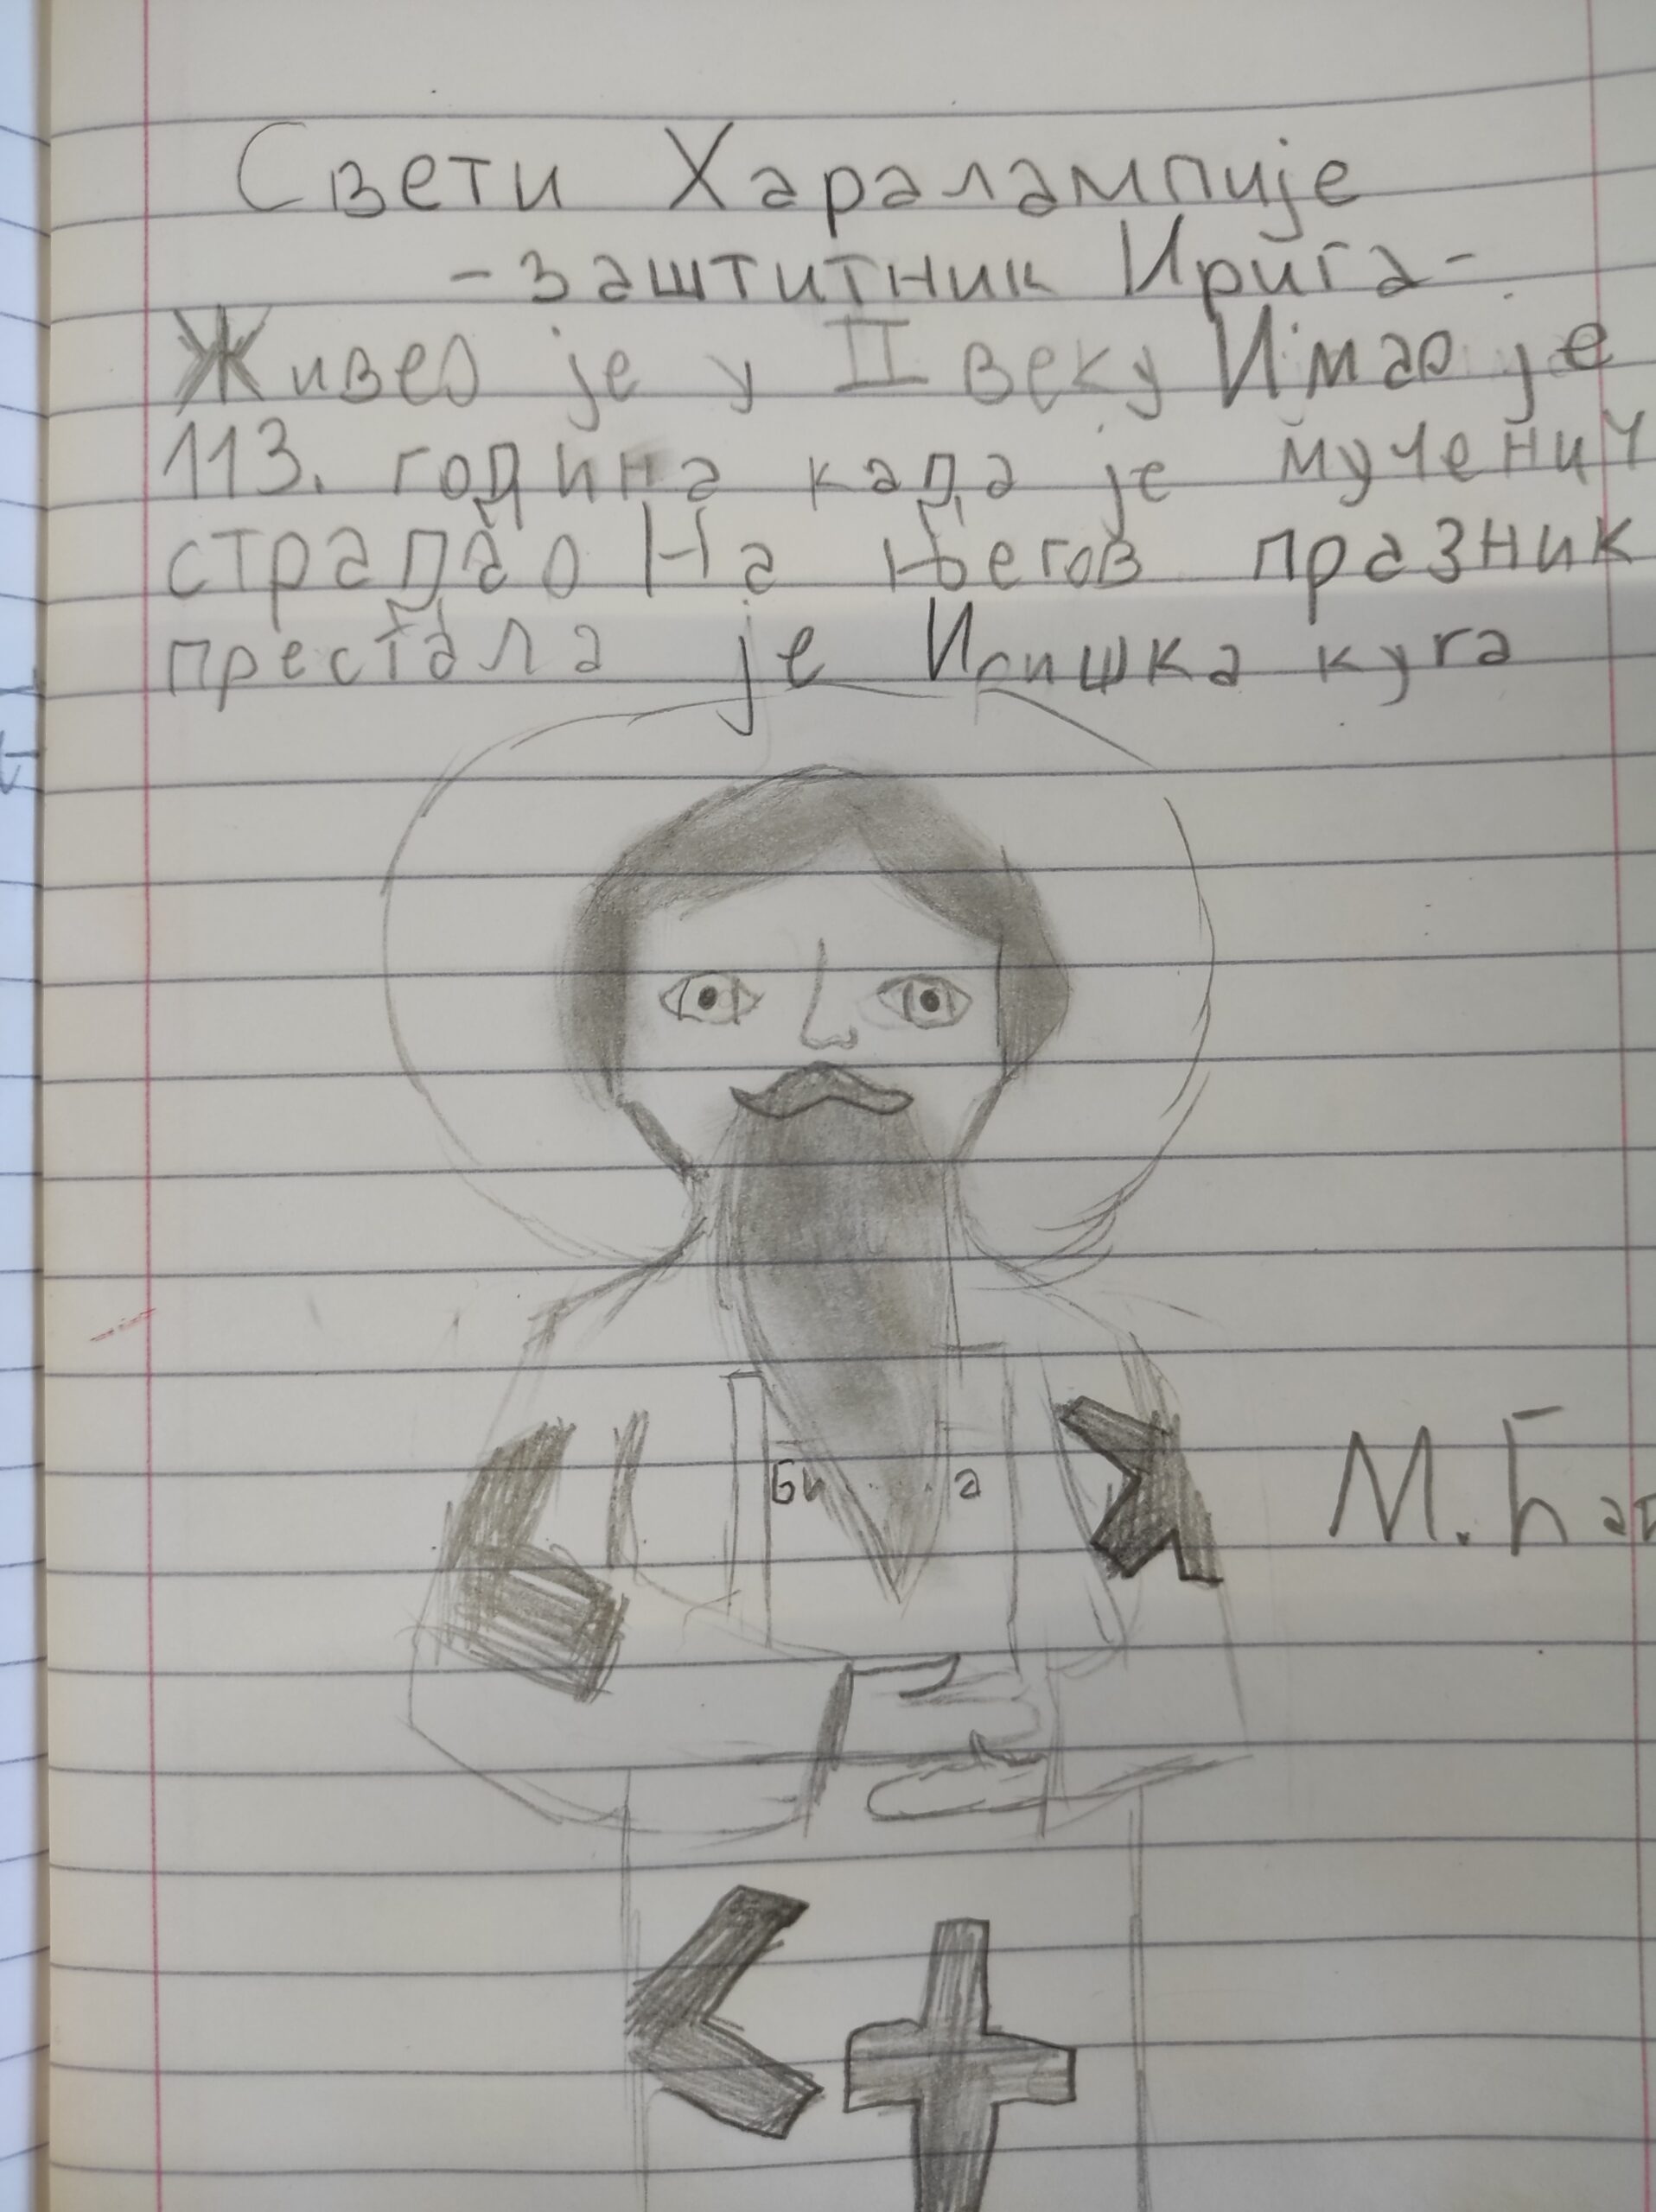 Свети Харалампије
-заштитник Ирига-
Живео је у II веку Имао је
113. година када је мученич
страдао На његов празник
престала је Иришка куга
Би а
М.